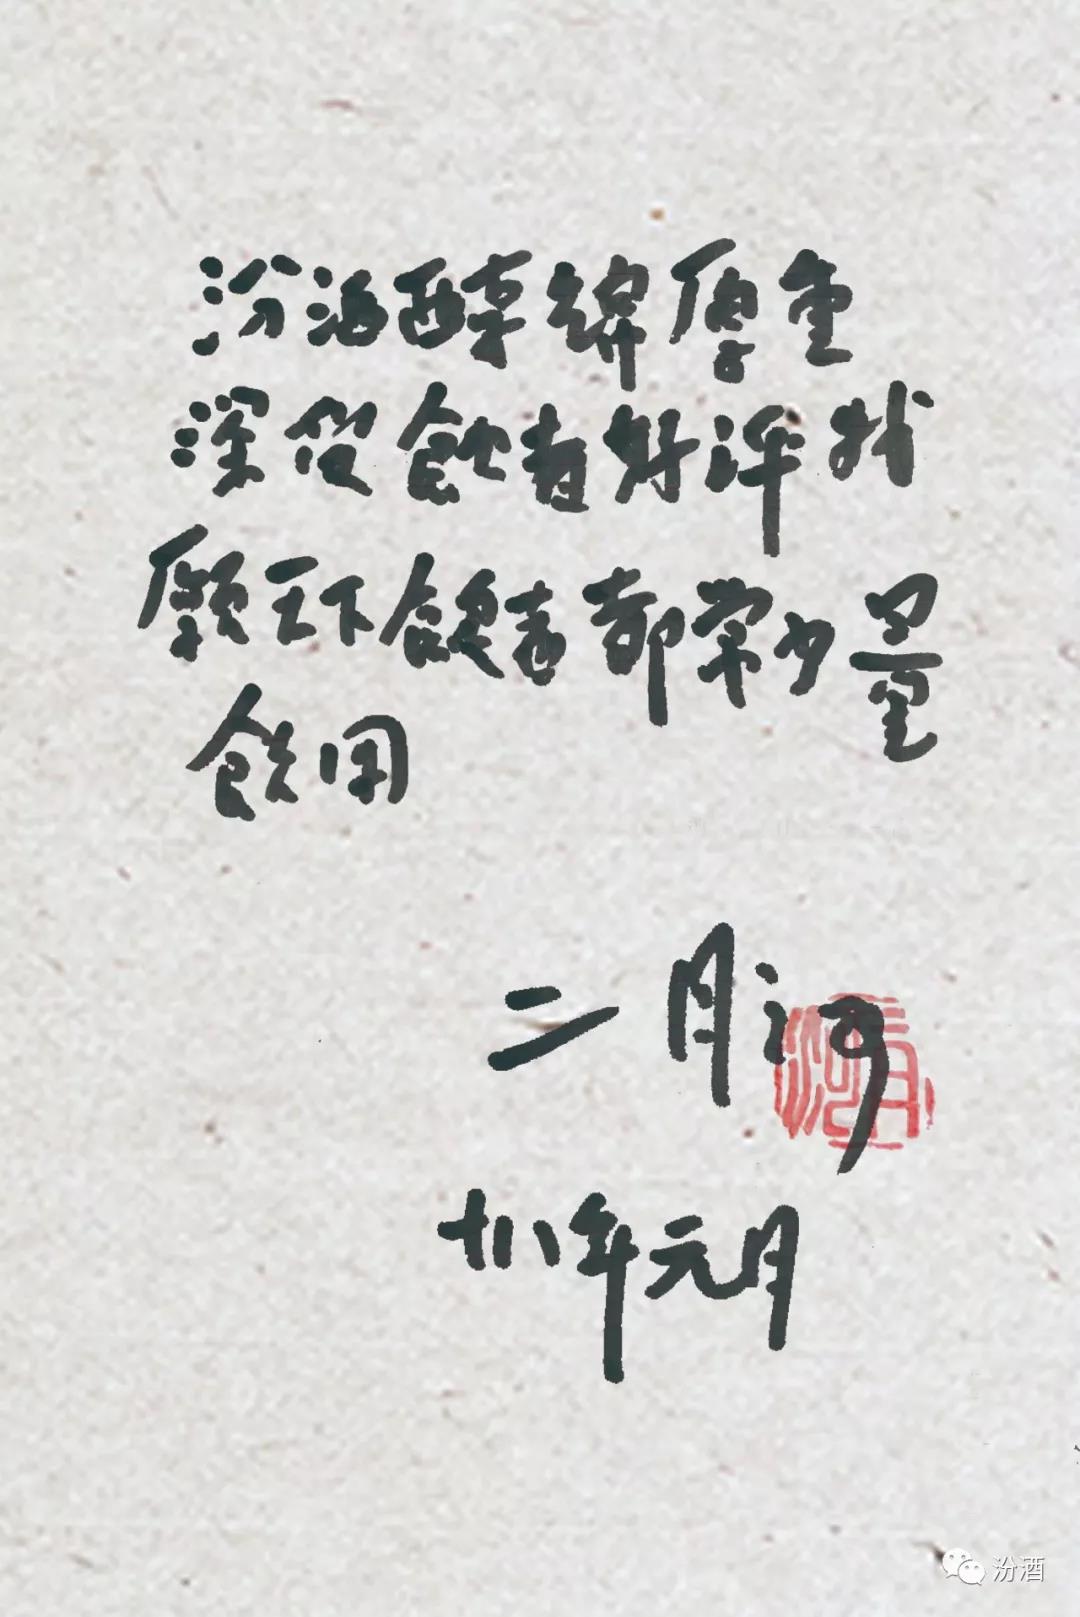 汾酒醇绵厚重
深得饮者好评我
愿天下饮者都常少量
饮用
二月河
十八年元月
汾酒